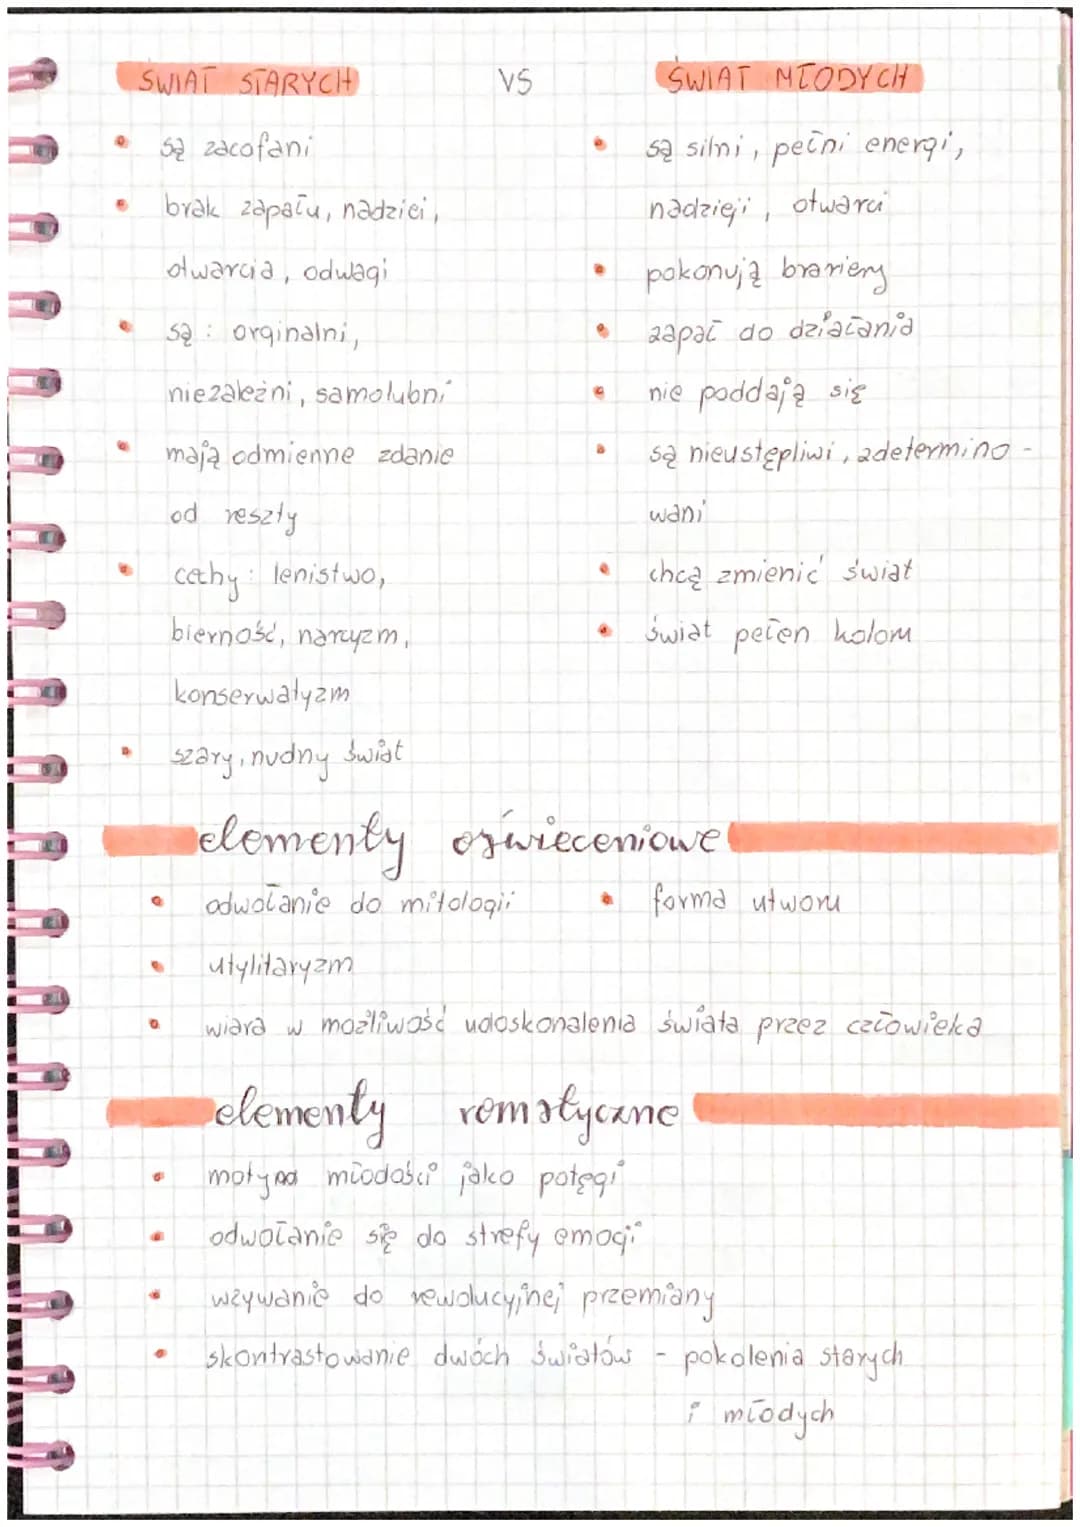 ŚWIAT STARYCH VS ŚWIAT MŁODYCH
są zacofani
brak zapału, nadziei,
otwarcia, odwagi
są : orginalni,
niezależni, samolubni
mają odmienne zdanie
od reszty
cechy : lenistwo,
bierność, narcyzm,
konserwatyzm
szary, nudny świat
są silni, pełni energi,
nadzieji, otwarci
pokonują brariery
zapał do działania
nie poddają się
są nieustępliwi, zdetermino-
wani
chcą zmienić świat
świat pełen kolorów
elementy oświeceniowe
odwołanie do mitologii
forma utworu
utylitaryzm
wiara w możliwość udoskonalenia świata przez człowieka
elementy romatyczne
motyw młodości jako potęgi
odwołanie się do strefy emocji
wzywanie do rewolucyjnej przemiany
skontrastowanie dwóch światów - pokolenia starych
i młodych